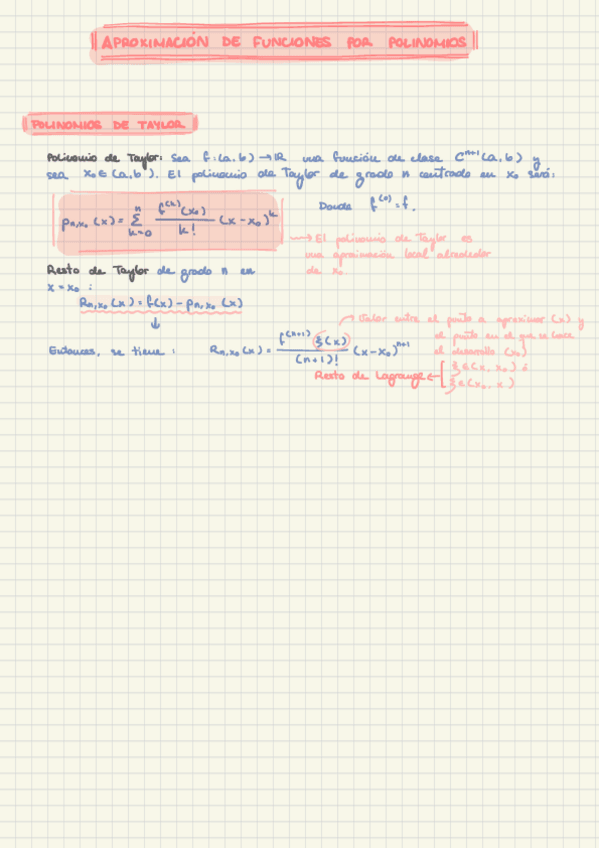 APROXIMACIÓN DE FUNCIONES POR POLINOMIOS
POLINOMIOS DE TAYLOR
Polinomio de Taylor: Sea f:(a,b) → ℝ una función de clase Cⁿ⁺¹(a,b) y
sea x₀ ∈ (a,b). El polinomio de Taylor de grado n centrado en x₀ será:
pₙ,ₓ₀(x) = Σ_{k=0}^{n} f^{(k)}(x₀)/k! (x-x₀)^k
Donde f^{(0)} = f.
→ El polinomio de Taylor es
una aproximación local alrededor
de x₀
Resto de Taylor de grado n en
x = x₀ :
Rₙ,ₓ₀(x) = f(x) - pₙ,ₓ₀(x)
↓
Entonces, se tiene : Rₙ,ₓ₀(x) = f^{(n+1)} ξ(x)/(n+1)! (x-x₀)^{n+1}
Valor entre el punto a aproximar (x) y
el punto en el que se hace
el desarrollo (x₀)
Resto de Lagrange ← [ ξ ∈ (x, x₀) ó
ξ ∈ (x₀, x)